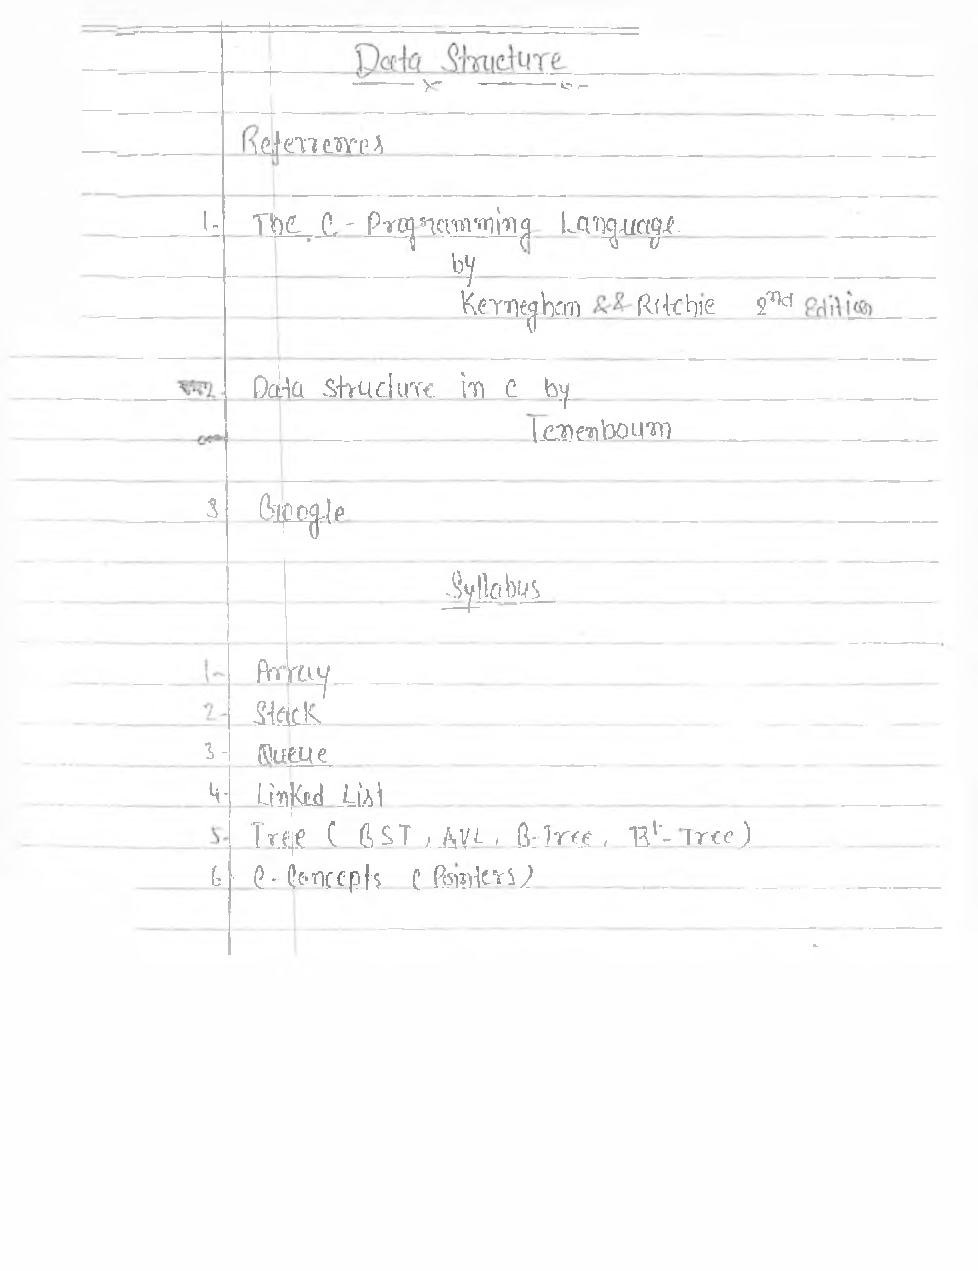 Data Structure
References
1- The C - Programming Language
by
Kernegham && Ritchie 2nd Edition
2. Data structure in c by
Tenenboum
3 Google
Syllabus
1- Array
2- Stack
3- Queue
4- Linked List
5- Tree ( BST, AVL, B-Tree, B+-Tree)
6 C-Concepts ( Pointers)